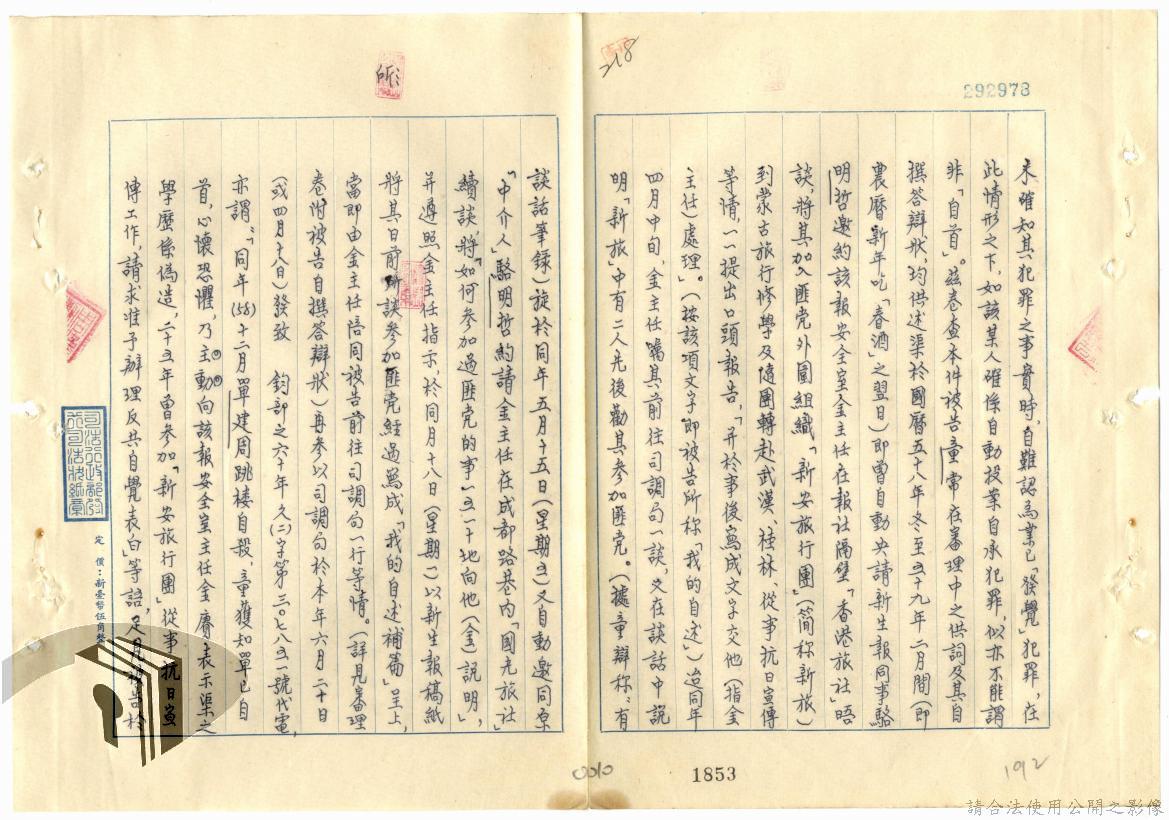 292978
218
未確知其犯罪之事實時，自難認為業已「發覺」犯罪，在
此情形之下，如該某人確係自動投案自承犯罪，似亦不能謂
非「自首」。茲卷查本件被告童常在審理中之供詞及其自
撰答辯狀，均供述渠於國曆五十八年冬至五十九年二月間（即
農曆新年吃「春酒」之翌日）即曾自動央請新生報同事駱
明哲邀約該報安全室金主任在報社隔壁「香港旅社」晤
談，將其加入匪黨外圍組織「新安旅行團」（簡称新旅）
到蒙古旅行修學及隨團轉赴武漢、桂林、從事抗日宣傳
等情，一一提出口頭報告，「并於事後寫成文字交他（指金
主任）處理」。（按該項文字即被告所称「我的自述」）迨同年
四月中旬，金主任囑其前往司調局一談，又在談話中說
明「新旅」中有二人先後勸其參加匪党。（據童辯称：有
談話筆錄）旋於同年五月十五日（星期五）又自動邀同原
「中介人駱明哲約請金主任在成都路巷內「國光旅社」
續談，將「如何參加過匪党的事一五一十地向他（金）說明」，
并遵照金主任指示，於同月十八日（星期一）以新生報稿紙
將其日前所談參加匪党經過寫成「我的自述補篇」呈上，
當即由金主任陪同被告前往司調局一行等情。（詳見審理
卷附被告自撰答辯狀）再參以司調局於本年六月二十日
（或四月十八日）發致　鈞部之六十年久（二）字第三〇七八五一號代電，
亦謂：「同年（58）十二月單建周跳楼自殺，童獲知單已自
首，心懷恐懼，乃主動向該報安全室主任金賡表示渠之
學歷係偽造，二十五年曾參加「新安旅行團」從事抗日宣
傳工作，請求准予辦理反共自覺表白」等語，足見被告於
司法行政部發行司法狀紙章
定價：新臺幣伍角整
0010
1853
192
請合法使用公開之影像